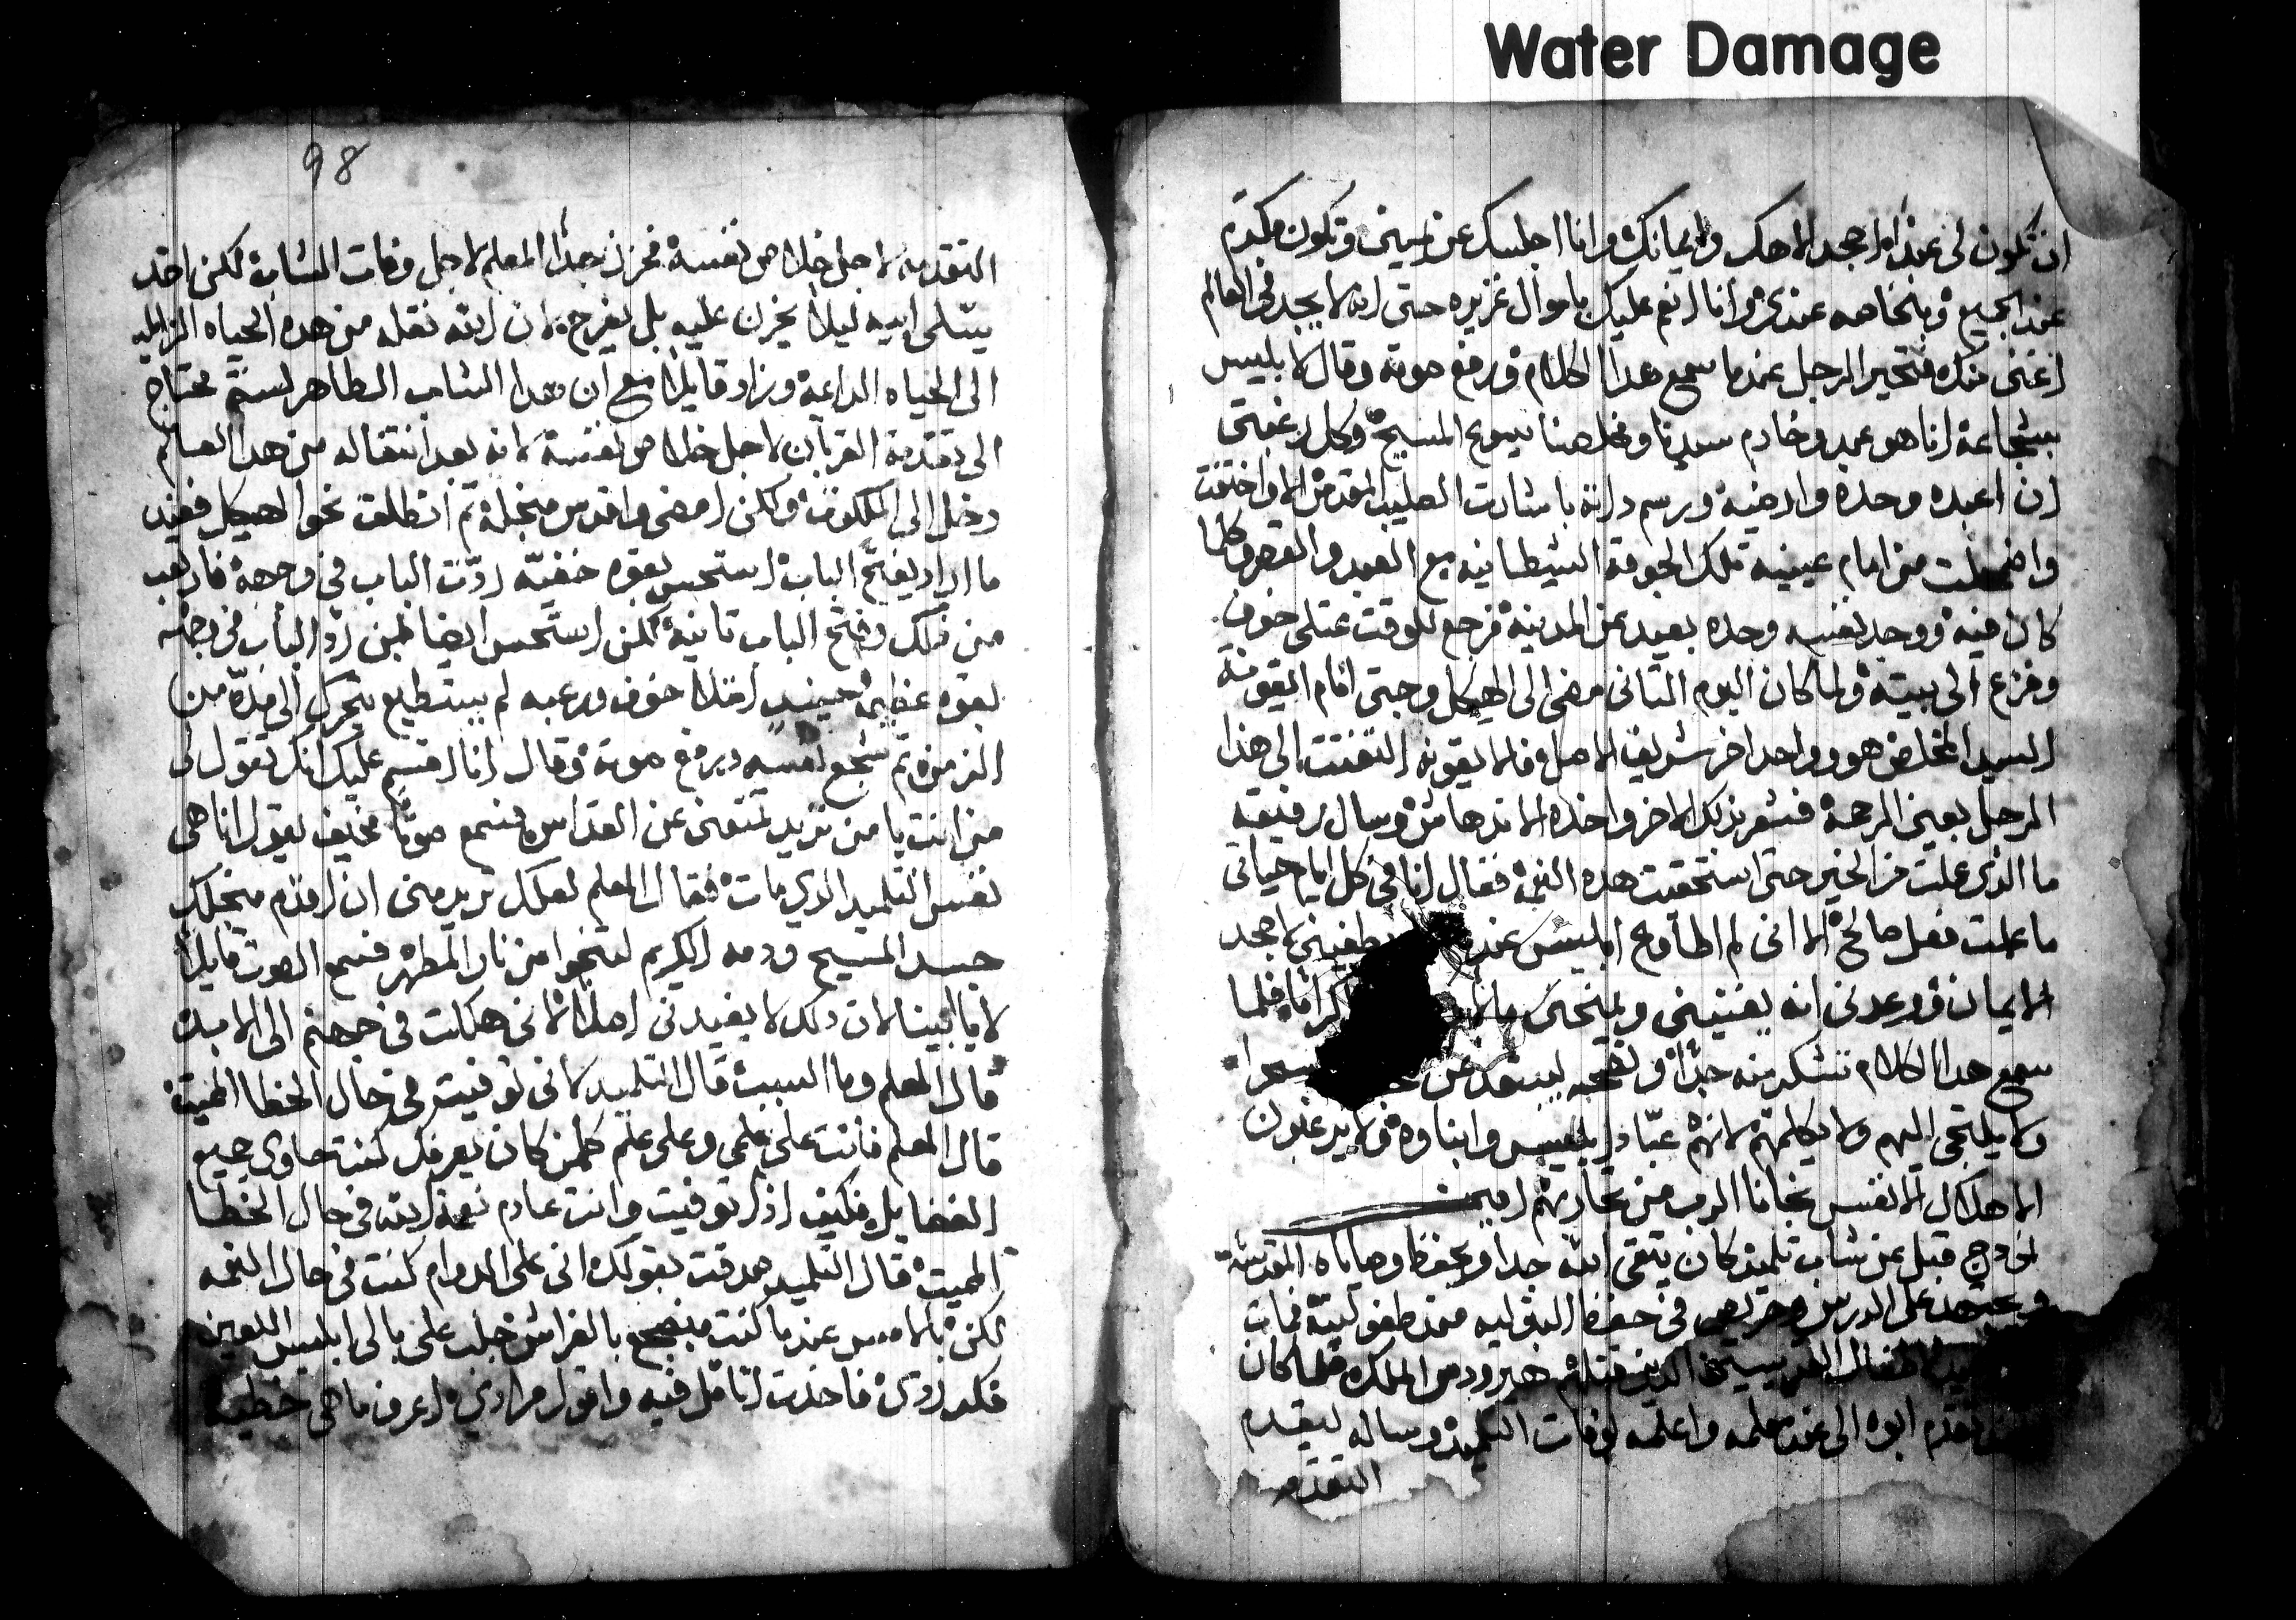 Water Damage
ان تكون لي عبدًا احجد الاهك وايمانك وانا اجلسك عن يميني وتكون مكرم
عند الجميع وبخاصه عندي وانا انعم عليك باموال غزيره حتى انه لا يجد في العالم
اغنى منك فتحير الرجل عندما سمع هدا الكلام ورفع صوته وقال لابليس
بشجاعة انا هو عبد وخادم سيدنا ومخلصنا يسوع المسيح وكل رغبتي
ان اعبده وحده وارضيه ورسم داته باشارت الصليب المقدس الا واختفت
واضمحلت من امام عينيه تلك الجوقه الشيطانيه مع العبد والقصر وكلما
كان فيه ووجد نفسه وحده بعيد عن المدينه فرجع للوقت عتلى خوف
وفزع الى بيته ولما كان اليوم التانى مضى الى الهيكل وجتى امام ايقونة
السيد المخلص هو وواحد اخر شريف الاصل فالايقونه التفتت الى هدا
الرجل بعين الرحمة فشعر بدلك الاخر واخده الاندهاش وسال رفيقه
ما الذي عملت من الخير حتى استحقيت هده النعمة فقال انا في كل ايام حياتي
ما عملت فعل صالح الا انى لم اطاوع ابليس عند يطغيني لاجحد
الايمان ووعدني انه يغنيني ويمنحني فلما
سمع هدا الكلام تشكر منه جدًا ونصحه ليبتعد عن
ولا يلتجى اليهم ولا يكلمهم لانهم عبّاد ابليس وابناوه ولا يرغبون
الا هلاك الانفس نجانا الرب من تجاربهم امين
نودج قيل عن شاب تلميذ كان يتقى الله جدا ويحفظ وصاياه المقدسه
ويجتهد على الدرس وحريص في حفظ البتوليه مند طفوليته فمات
الاطفال القديسين الدين قتلهم هيرودس الملك فلما كان
تقدم ابوه الى عند معلمه واعلمه بوفات التلميذ وساله ليقدم
التقدمه
98
التقدمه لاجل خلاص نفسه فحزن جدًا المعلم لاجل وفات الشاب لكن اخد
يسّلى ابيه ليلا يحزن عليه بل يفرح لان الله نقله من هده الحياه الزايله
الى الحياه الدايمة وزاد قايلا مع ان هدا الشاب الطاهر لستُم محتاج
الى تقدمة القربان لاجل خلاص نفسه لانه بعد انتقاله من هدا العالم
دخل الى الملكوت ولكن امضى واقدس منجله تم انطلق نحو الهيكل فعند
ما اراد يفتح الباب استحس بقوه خفيّه ردّت الباب في وجهه فارتعب
من دلك وفتح الباب تانية لكن استحس ايضا بمن ردّ الباب في وجهه
بقوه عظيمه حينيد امتلا خوف ورعبه لم يستطيع يتحرك الى مدّة من
الزمن تم شجع نفسه ورفع صوته وقال انا اقسم عليك انك تقول لي
من انت يا من تريد تمنعني عن القداس فسمع صوتًا مخيف يقول انا هي
نفس التلميد الدي مات فقال المعلم لعلك تريد منى ان اقدم منجلك
جسد المسيح ودمه الكريم لتنجوا من نار المطهر فسمع الصوت قايلا
لا يا ابينا لان دلك لا يفيدني اصلا لاني هلكت في جهنم الى الابد
قال المعلم وما السبب قال التلميد لاني توفيت في حال الخطا المميتة
قال المعلم فانت على علمى وعلى علم كلمن كان يعرفك كنت حاوى جميع
الفضايل فكيف ادا توفيت وانت عادم نعمة الله في حال الخطا
المميتة قال التلميد صدقت بقولك اني على الدوام كنت في حال النعمه
لكن بالامس عندما كنت مضجع بالفراش جلب على بالي ابليس اللعين
فكر ردي فاخدت اتامل فيه واقول مرادي اعرف ما هي خطية